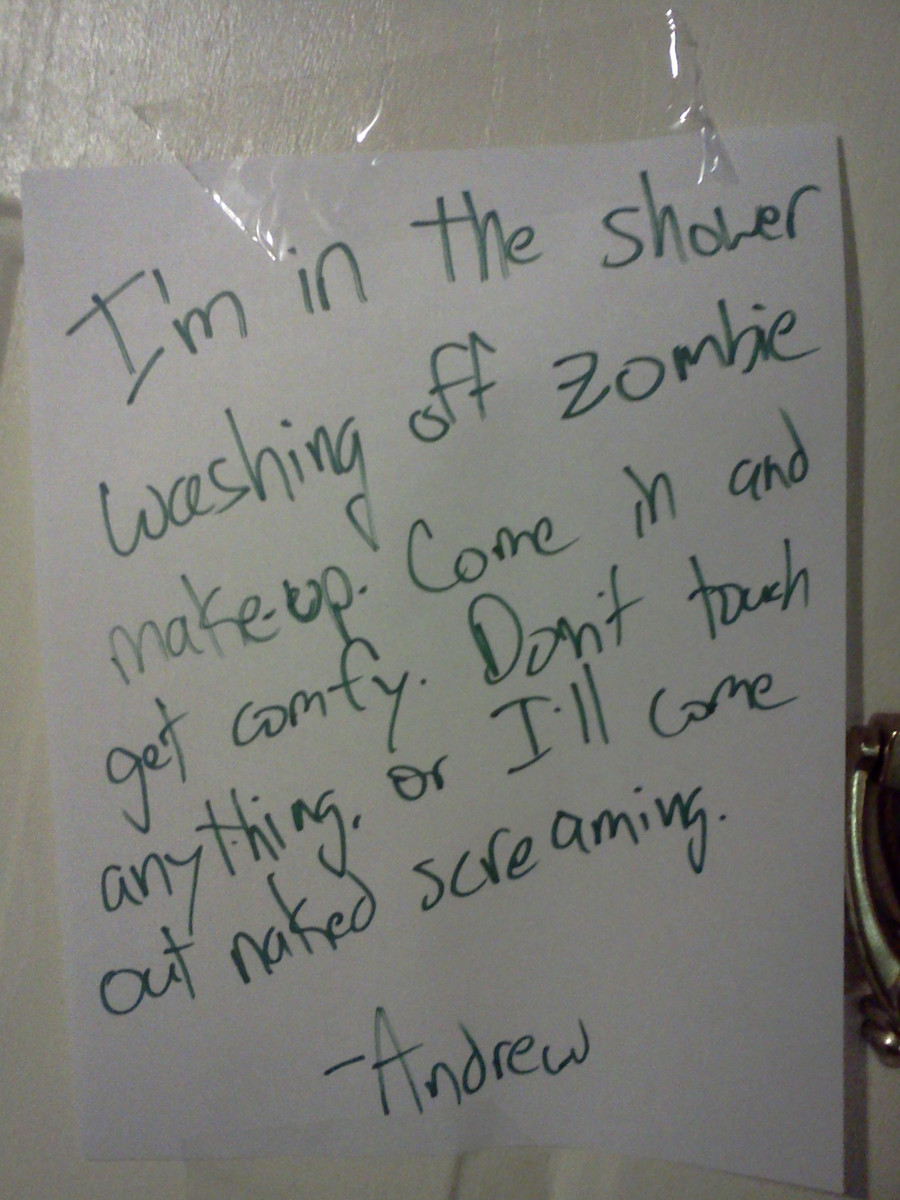 I'm in the shower
washing off zombie
make-up. Come in and
get comfy. Don't touch
anything, or I'll come
out naked screaming.
-Andrew